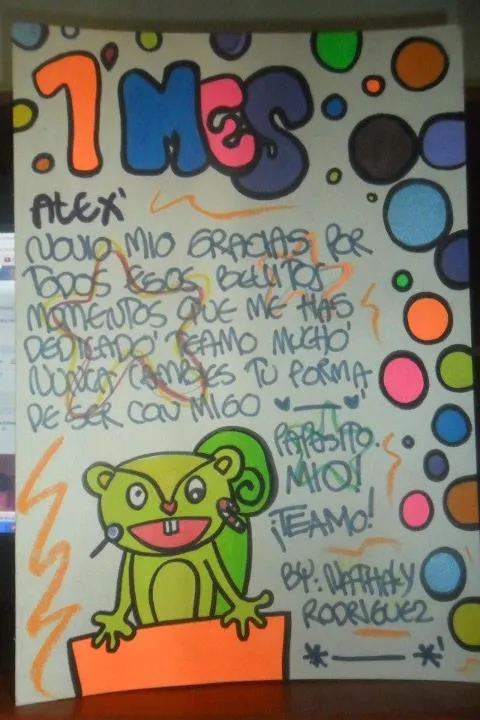 1' MES
ALEX'
NOVIO MIO GRACIAS POR
TODOS ESOS BELLITOS
MOMENTOS QUE ME HAS
DEDICADO' TEAMO MUCHO'
NUNCA CAMBIES TU FORMA
DE SER CON MIGO
PAPASITO.
MIO!
¡TEAMO!
BY: NATHALY
RODRIGUEZ